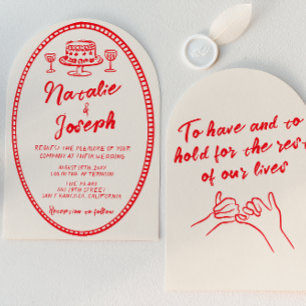 Natalie
&
Joseph
REQUEST THE PLEASURE OF YOUR
COMPANY AT THEIR WEDDING
AUGUST 19TH, 20XX
4:00 IN THE AFTERNOON
STREET
SAN FRANCISCO, CALIFORNIA
Reception to follow
To have and to
hold for the rest
of our lives